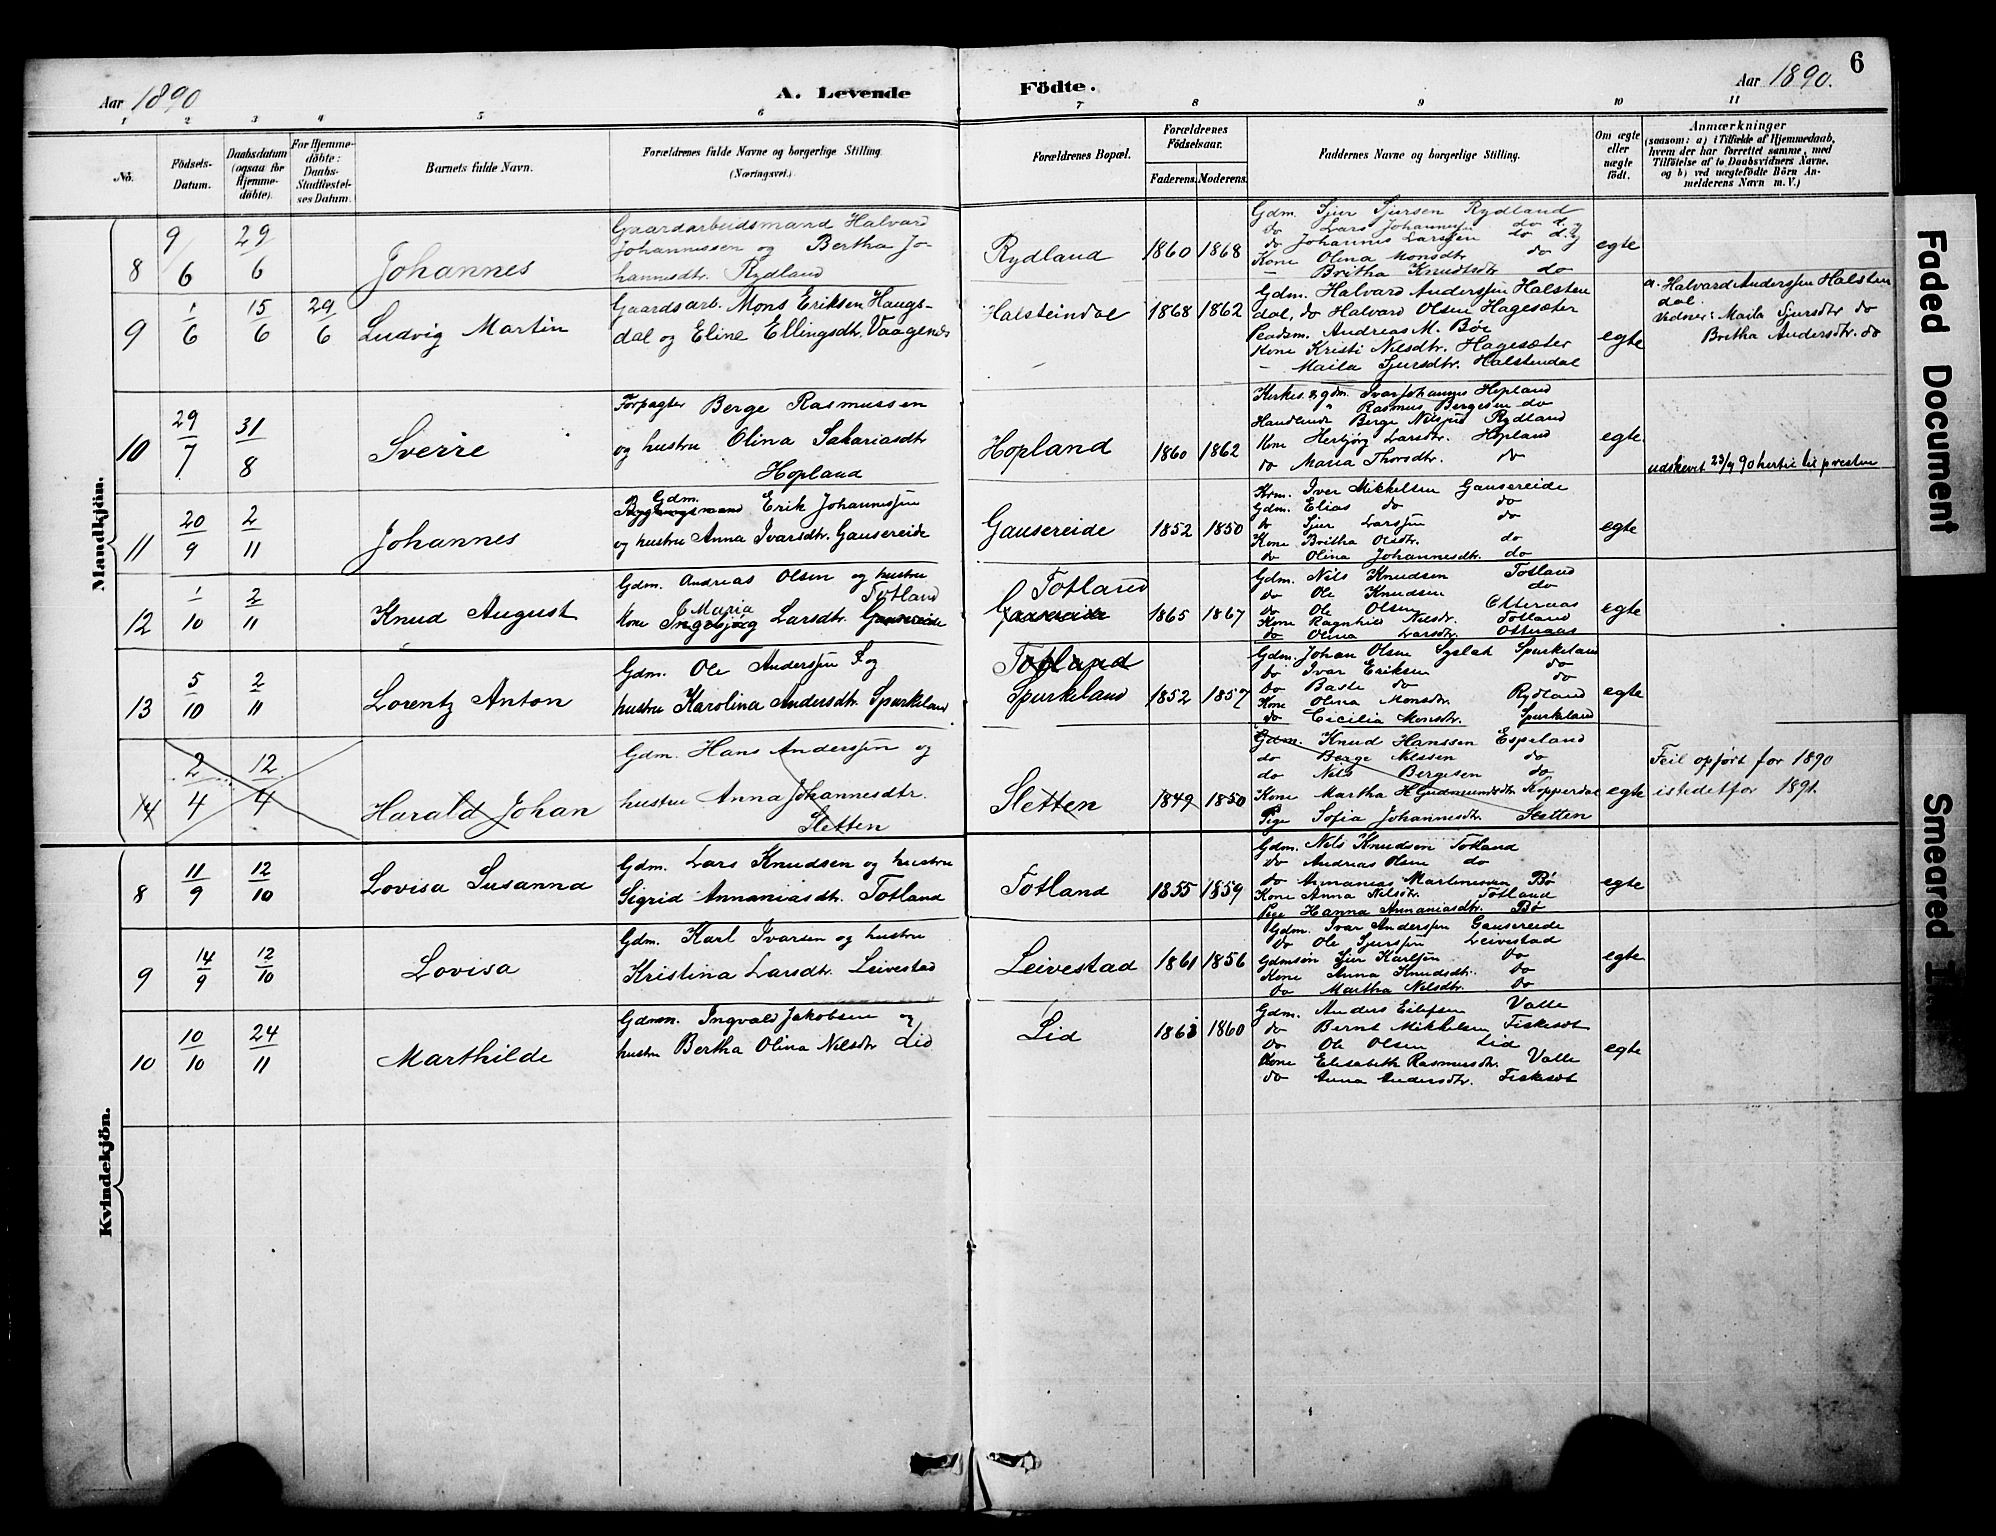 6
Aar 1890 A. Levende Födte. Aar 1890.
1 2 3 4 5 6 7 8 9 10 11
No. Födsels-Datum. Daabsdatum (ogsaa för Hjemme-döbte). For Hjemme-döbte: Daabs-Stadfæstel-ses Datum. Barnets fulde Navn. Forældrenes fulde Navne og borgerlige Stilling. (Næringsvei.) Forældrenes Bopæl. Forældrenes Fødselsaar. Faderens. Moderens. Faddernes Navne og borgerlige Stilling. Om ægte eller uægte födt. Anmærkninger
(saasom: a) i Tilfælde af Hjemmedaab, hvem der har forrettet samme, med Tilföielse af to Daabsvidners Navne, og b) ved uægtefödte Börn An-melderens Navn m. V.)
Mandkjön.
8 9/6 29/6 Johannes
Gaardarbeidsmand Halvard
Johannessen og Bertha Jo-
hannesdtr. Rydland
Rydland 1860 1868
Gdm. Sjur Sjursen Rydland
do Lars Johannessen do
do Johannes Larssen do
Kone Olina Monsdtr do
— Britha Knudtsdtr do
egte
9 1/6 15/6 29/6 Ludvig Martin
Gaardsarb. Mons Eriksen Haugs-
dal og Eline Ellingsdtr. Vaagenes
Halsteindal 1868 1862
Gdm. Halvard Anderssen Halsten
dal, do Halvard Olsen Hagesæter
Andreas M. Böe
Kone Kristi Nilsdtr. Hagesæter
— Maila Sjursdtr. Halstendal
egte
a. Halvard Anderssen Halsten
dal.
Vidner: Maila Sjursdtr do
Britha Andersdtr. do
10 29/7 31/8 Sverre
Forpagter Berge Rasmussen
og hustru Olina Sakariasdtr
Hopland
Hopland 1860 1862
Kirkes. & gdm. Ivar Johannes Hopland
" Rasmus Bergesen do
Handlende Berge Nilssen Rydland
Kone Herbjørg Larsdtr. Hopland
do Maria Thorsdtr. do
egte.
udskrevet 23/9 90 hertil til presten
11 20/9 2/11 Johannes
Gdm.
Erik Johannessen
og hustru Anna Ivarsdtr. Gausereide
Gausereide 1852 1850
Iver Mikkelsen Gausereide
Gdm. Elias do do
do Sjur Larssen do
Kone Britha Olsdtr. do
do Olina Johannesdtr. do
egte
12 1/10 2/11 Knud August
Gdm. Andreas Olsen og hustru
Maria Totland
Kone Ingebjørg Larsdtr. Gausereide
Totland
Gausereide 1865 1867
Gdm. Nils Knudsen Totland
do Ole Knudsen do
do Ole Olsen Otteraas
Kone Ragnhild Nilsdtr. Totland
do Olina Larsdtr. Otteraas
egte
13 5/10 2/11 Lorentz Anton
Gdm. Ole Anderssen og
hustru Karolina Andersdtr. Spurkeland
Totland
Spurkeland 1852 1857
Gdm. Johan Olsen Spurkeland
do Ivar Eriksen do
do Baste do do
Kone Olina Monsdtr. Rydland
do Cicilia Monsdtr. Spurkeland
egte
14 2/4 12/4 Harald Johan
Gdm. Hans Anderssen og
hustru Anna Johannesdtr.
Sletten
Sletten 1849 1850
Gdm. Knud Hanssen Espeland
do Berge Nilssen do
do Nils Bergesen do
Kone Martha H Gudmundsdtr Kopperdal
Pige Sofia Johannesdtr. Sletten
egte
Feil opført for 1890
istedetfor 1891.
Kvindekjön.
8 11/9 12/10 Lovisa Susanna
Gdm. Lars Knudsen og hustru
Sigrid Annaniasdtr. Totland
Totland 1855 1859
Gdm. Nils Knudsen Totland
do Andreas Olsen do
do Annanias Martinussen Bø
Kone Anna Nilsdtr. Totland
Pige Hanna Annaniasdtr. Bø
egte
9 14/9 12/10 Lovisa
Gdm. Karl Ivarsen og hustru
Kristina Larsdtr. Leivestad
Leivestad 1861 1856
Gdm. Ivar Anderssen Gausereide
do Ole Sjurssen Leivestad
Gdmsøn Sjur Karlsen do
Kone Anna Knudsdtr do
do Martha Nilsdtr. do
egte
10 10/10 24/11 Marthilde
Gdmn. Ingvald Jakobsen og
hustru Bertha Olina Nilsdtr Lid
Lid 1863 1860
Gdm. Anders Eilefsen Valle
do Bernt Mikkelsen Fiskeset
do Ole Olsen Lid
Kone Elisabeth Rasmusdtr. Valle
do Anna Andersdtr. Fiskeset
egte
Faded Document
Smeared